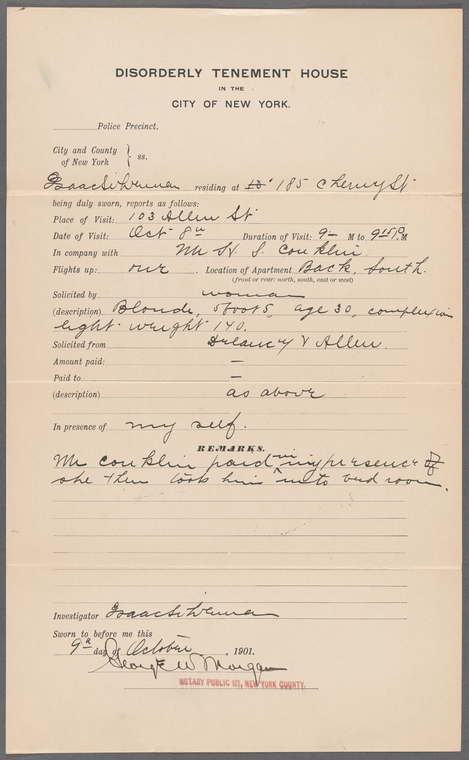 DISORDERLY TENEMENT HOUSE
IN THE
CITY OF NEW YORK.
Police Precinct.
City and County
of New York } ss.
Isaac Silverman residing at 185 Cherry St
being duly sworn, reports as follows:
Place of Visit: 103 Allen St
Date of Visit: Oct 8th Duration of Visit: 9 — M to 9 15 P M
In company with Mr H. S. Conklin.
Flights up: one Location of Apartment Back, South.
(front or rear: north, south, east or west)
Solicited by woman
(description) Blonde, 5 foot 5, age 30, complexion
light. weight 140.
Solicited from Delancey & Allen.
Amount paid: —
Paid to —
(description) as above
In presence of my self.
REMARKS.
Mr Conklin paid in my presence &
she then took him into bed room.
Investigator Isaac Silverman
Sworn to before me this
9th day of October, 1901.
George W Morgan
NOTARY PUBLIC 117, NEW YORK COUNTY.